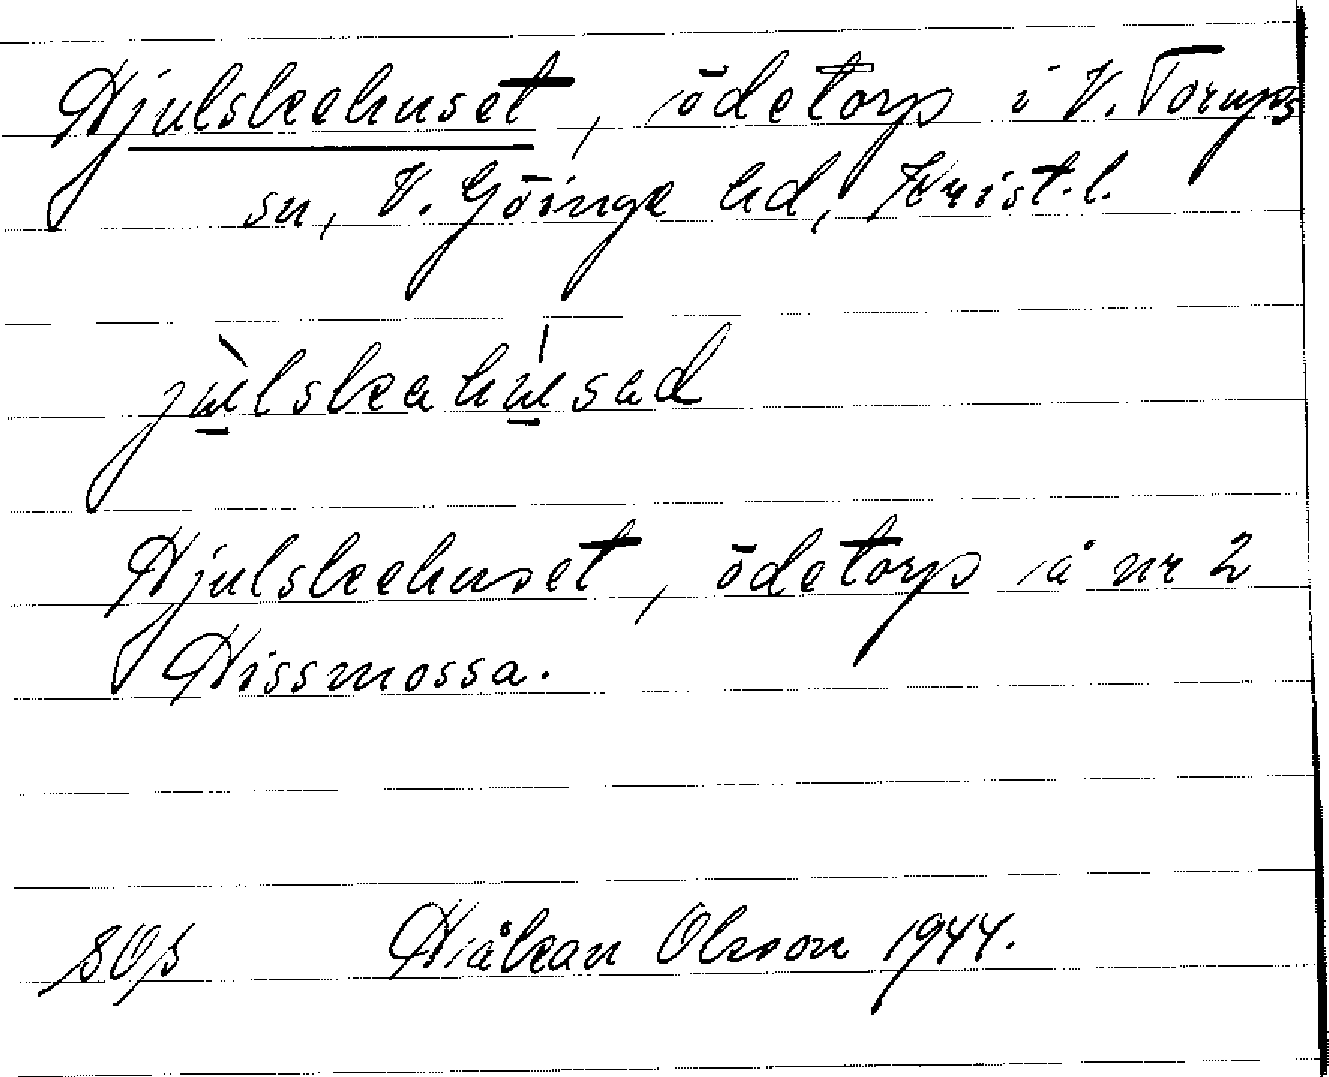 Hjulskehuset, ödetorp i V. Torups
sn, V. Göinge hd, Krist.l.
jùlskahúsad
Hjulskehuset, ödetorp å nr 2
Hissmossa.
Håkan Olsson 1944.